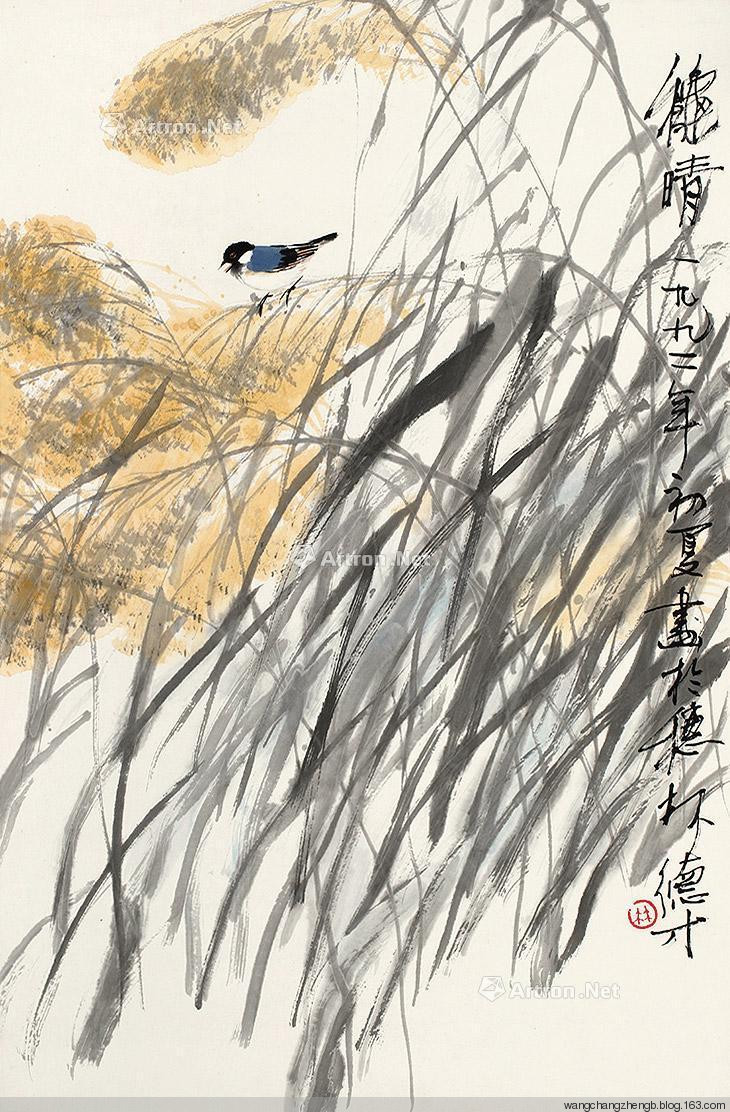 Artron.Net
龝晴 一九九二年初夏畫於穗 林德才
林
Artron.Net
Artron.Net
Artron.Net
wangchangzhengb.blog.163.com